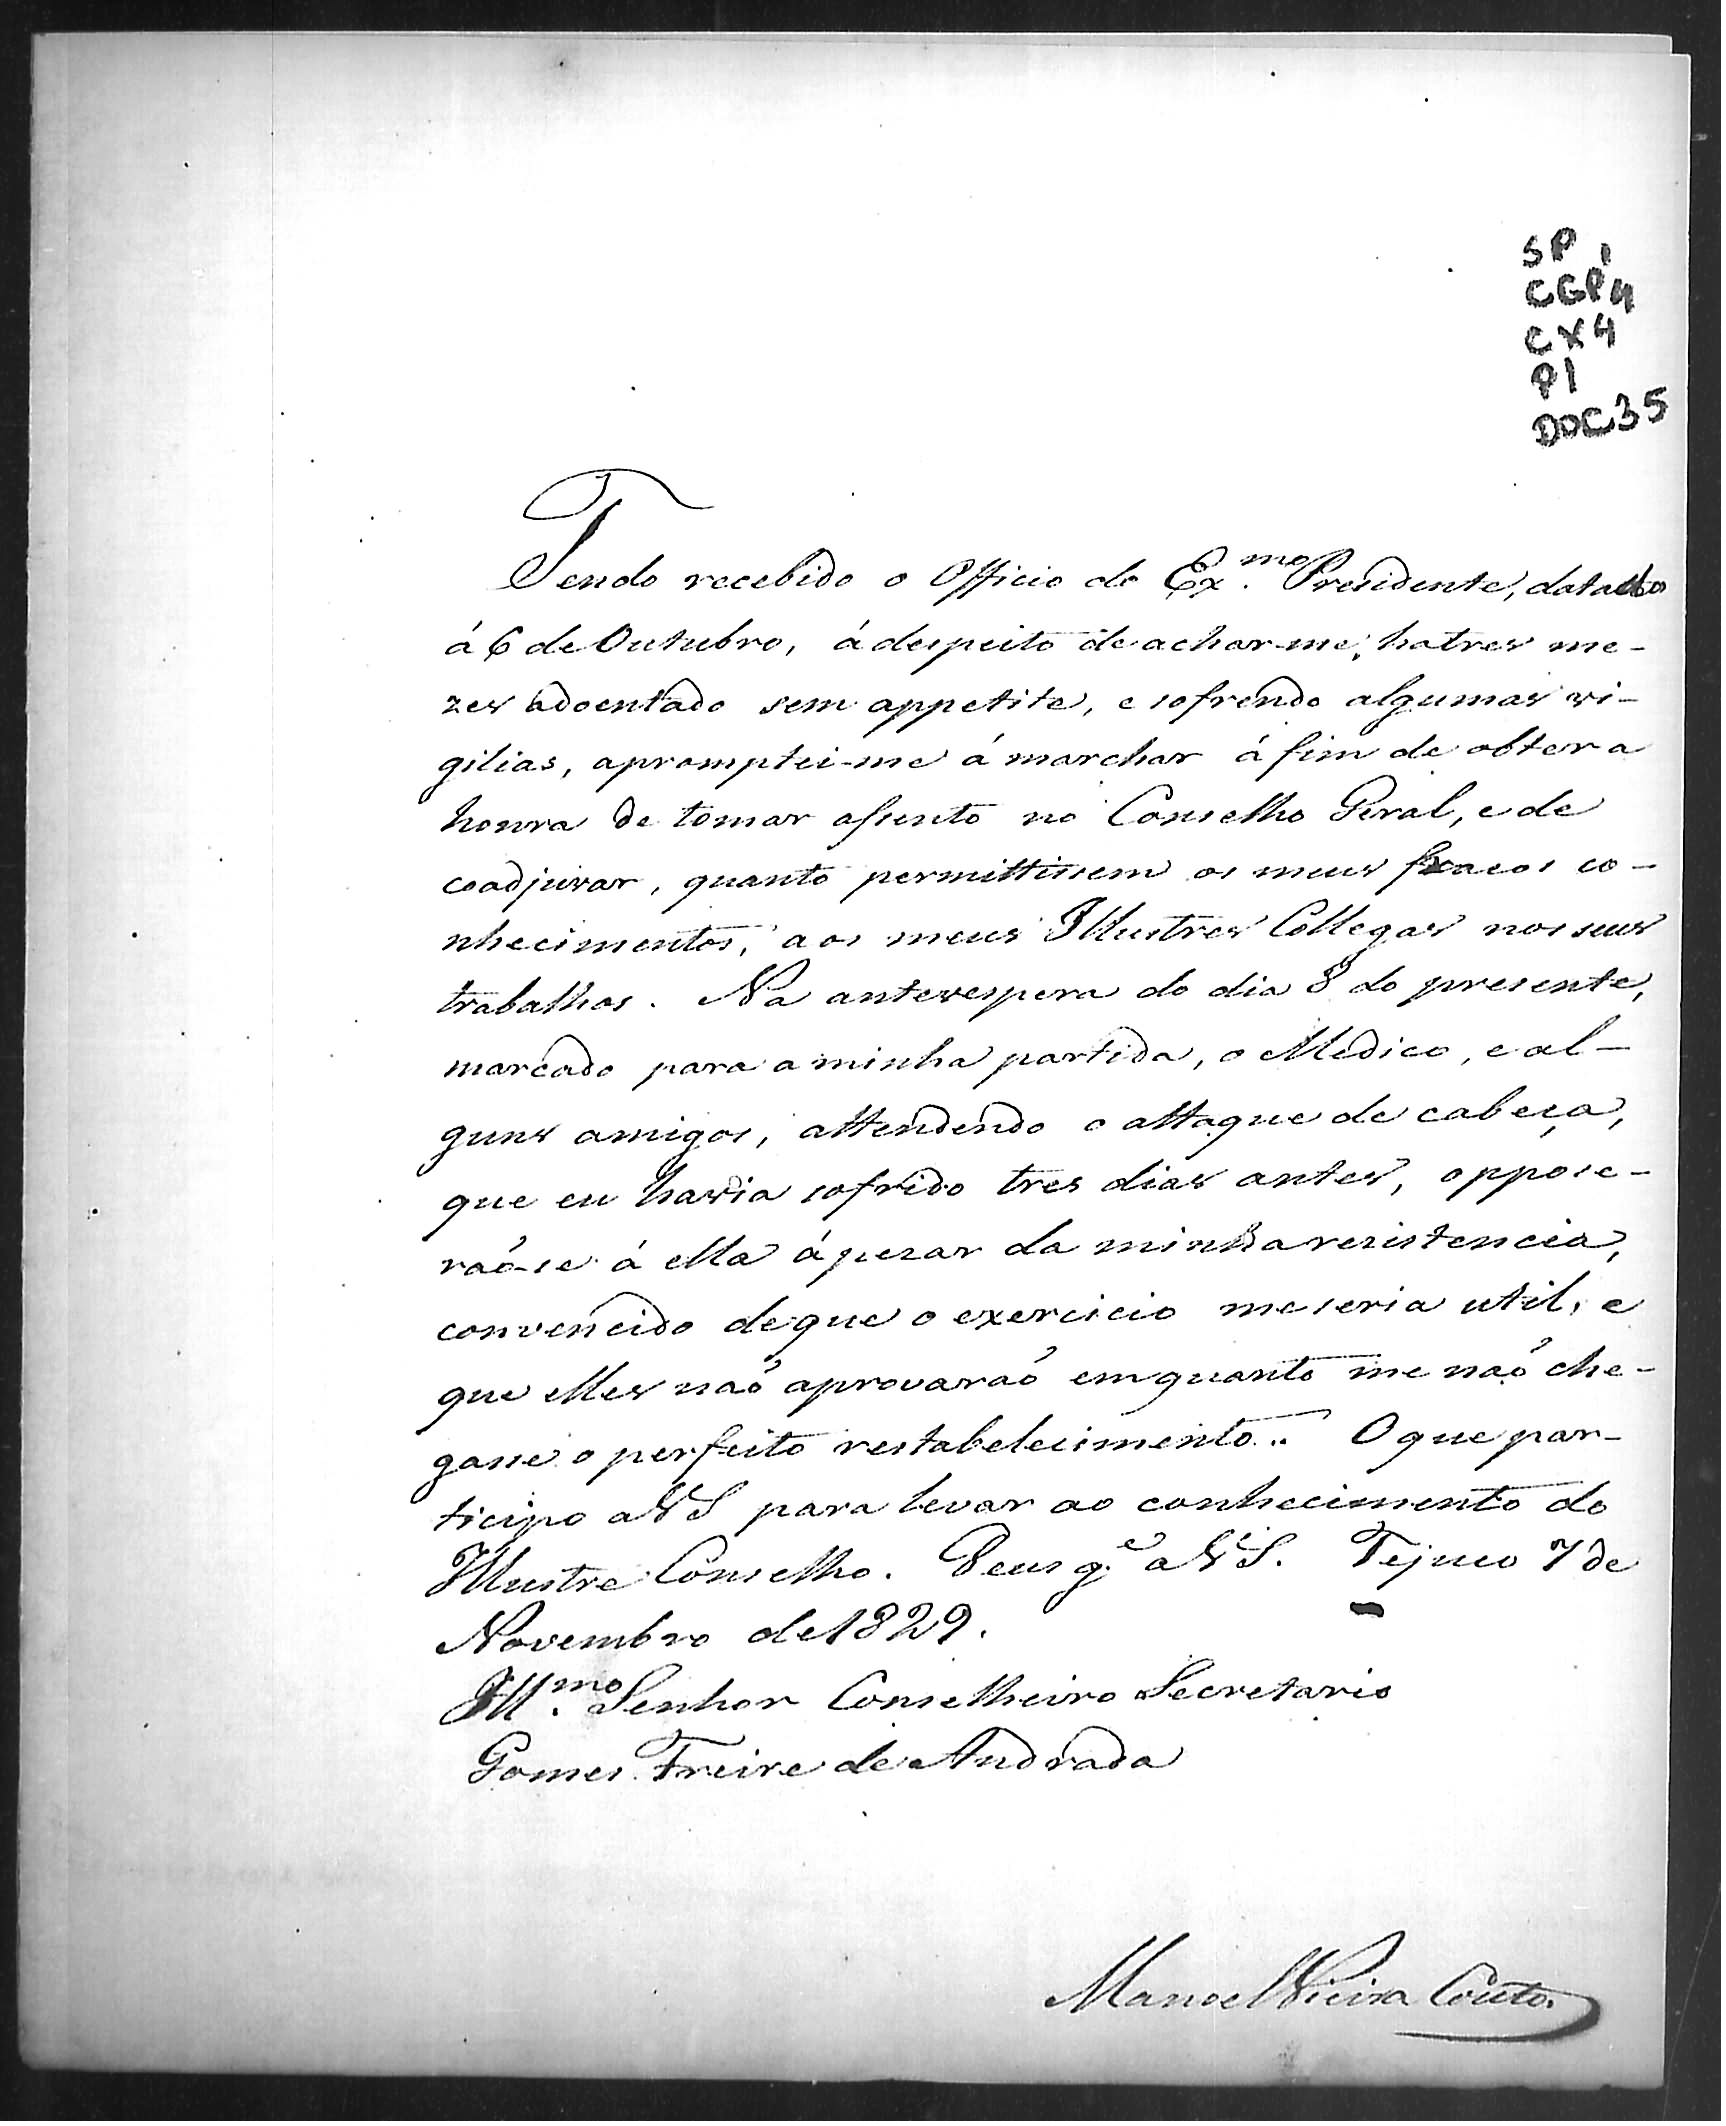 SP 1
CGP 4
CX 4
P1
DOC 35
Tendo recebido o Officio do Ex.mo Presidente, datado
á 6 de Outubro, á despeito de achar-me, ha tres me-
zes adoentado sem appetite, e sofrendo algumas vi-
gilias, apromptei-me á marchar á fim de obter a
honra de tomar assento no Conselho Geral, e de
coadjuvar, quanto permittissem os meus fracos co-
nhecimentos, aos meus Illustres Collegas nos seus
trabalhos. Na antevespera do dia 8 do presente,
marcado para a minha partida, o Medico, e al-
guns amigos, attendendo o attaque de cabeça,
que eu havia sofrido tres dias antes, oppose-
rão-se á ella ápezar da minha rezistencia,
convencido de que o exercicio me seria util, e
que elles naõ aprovaraõ emquanto me naõ che-
gasse o perfeito restabelecimento.. O que par-
ticipo a VS para levar ao conhecimento do
Illustre Conselho. Deus g.e a VS. Tejuco 7 de
Novembro de 1829.
Ill.mo Senhor Conselheiro Secretario
Gomes Freire de Andrada
Manoel Vieira Couto.